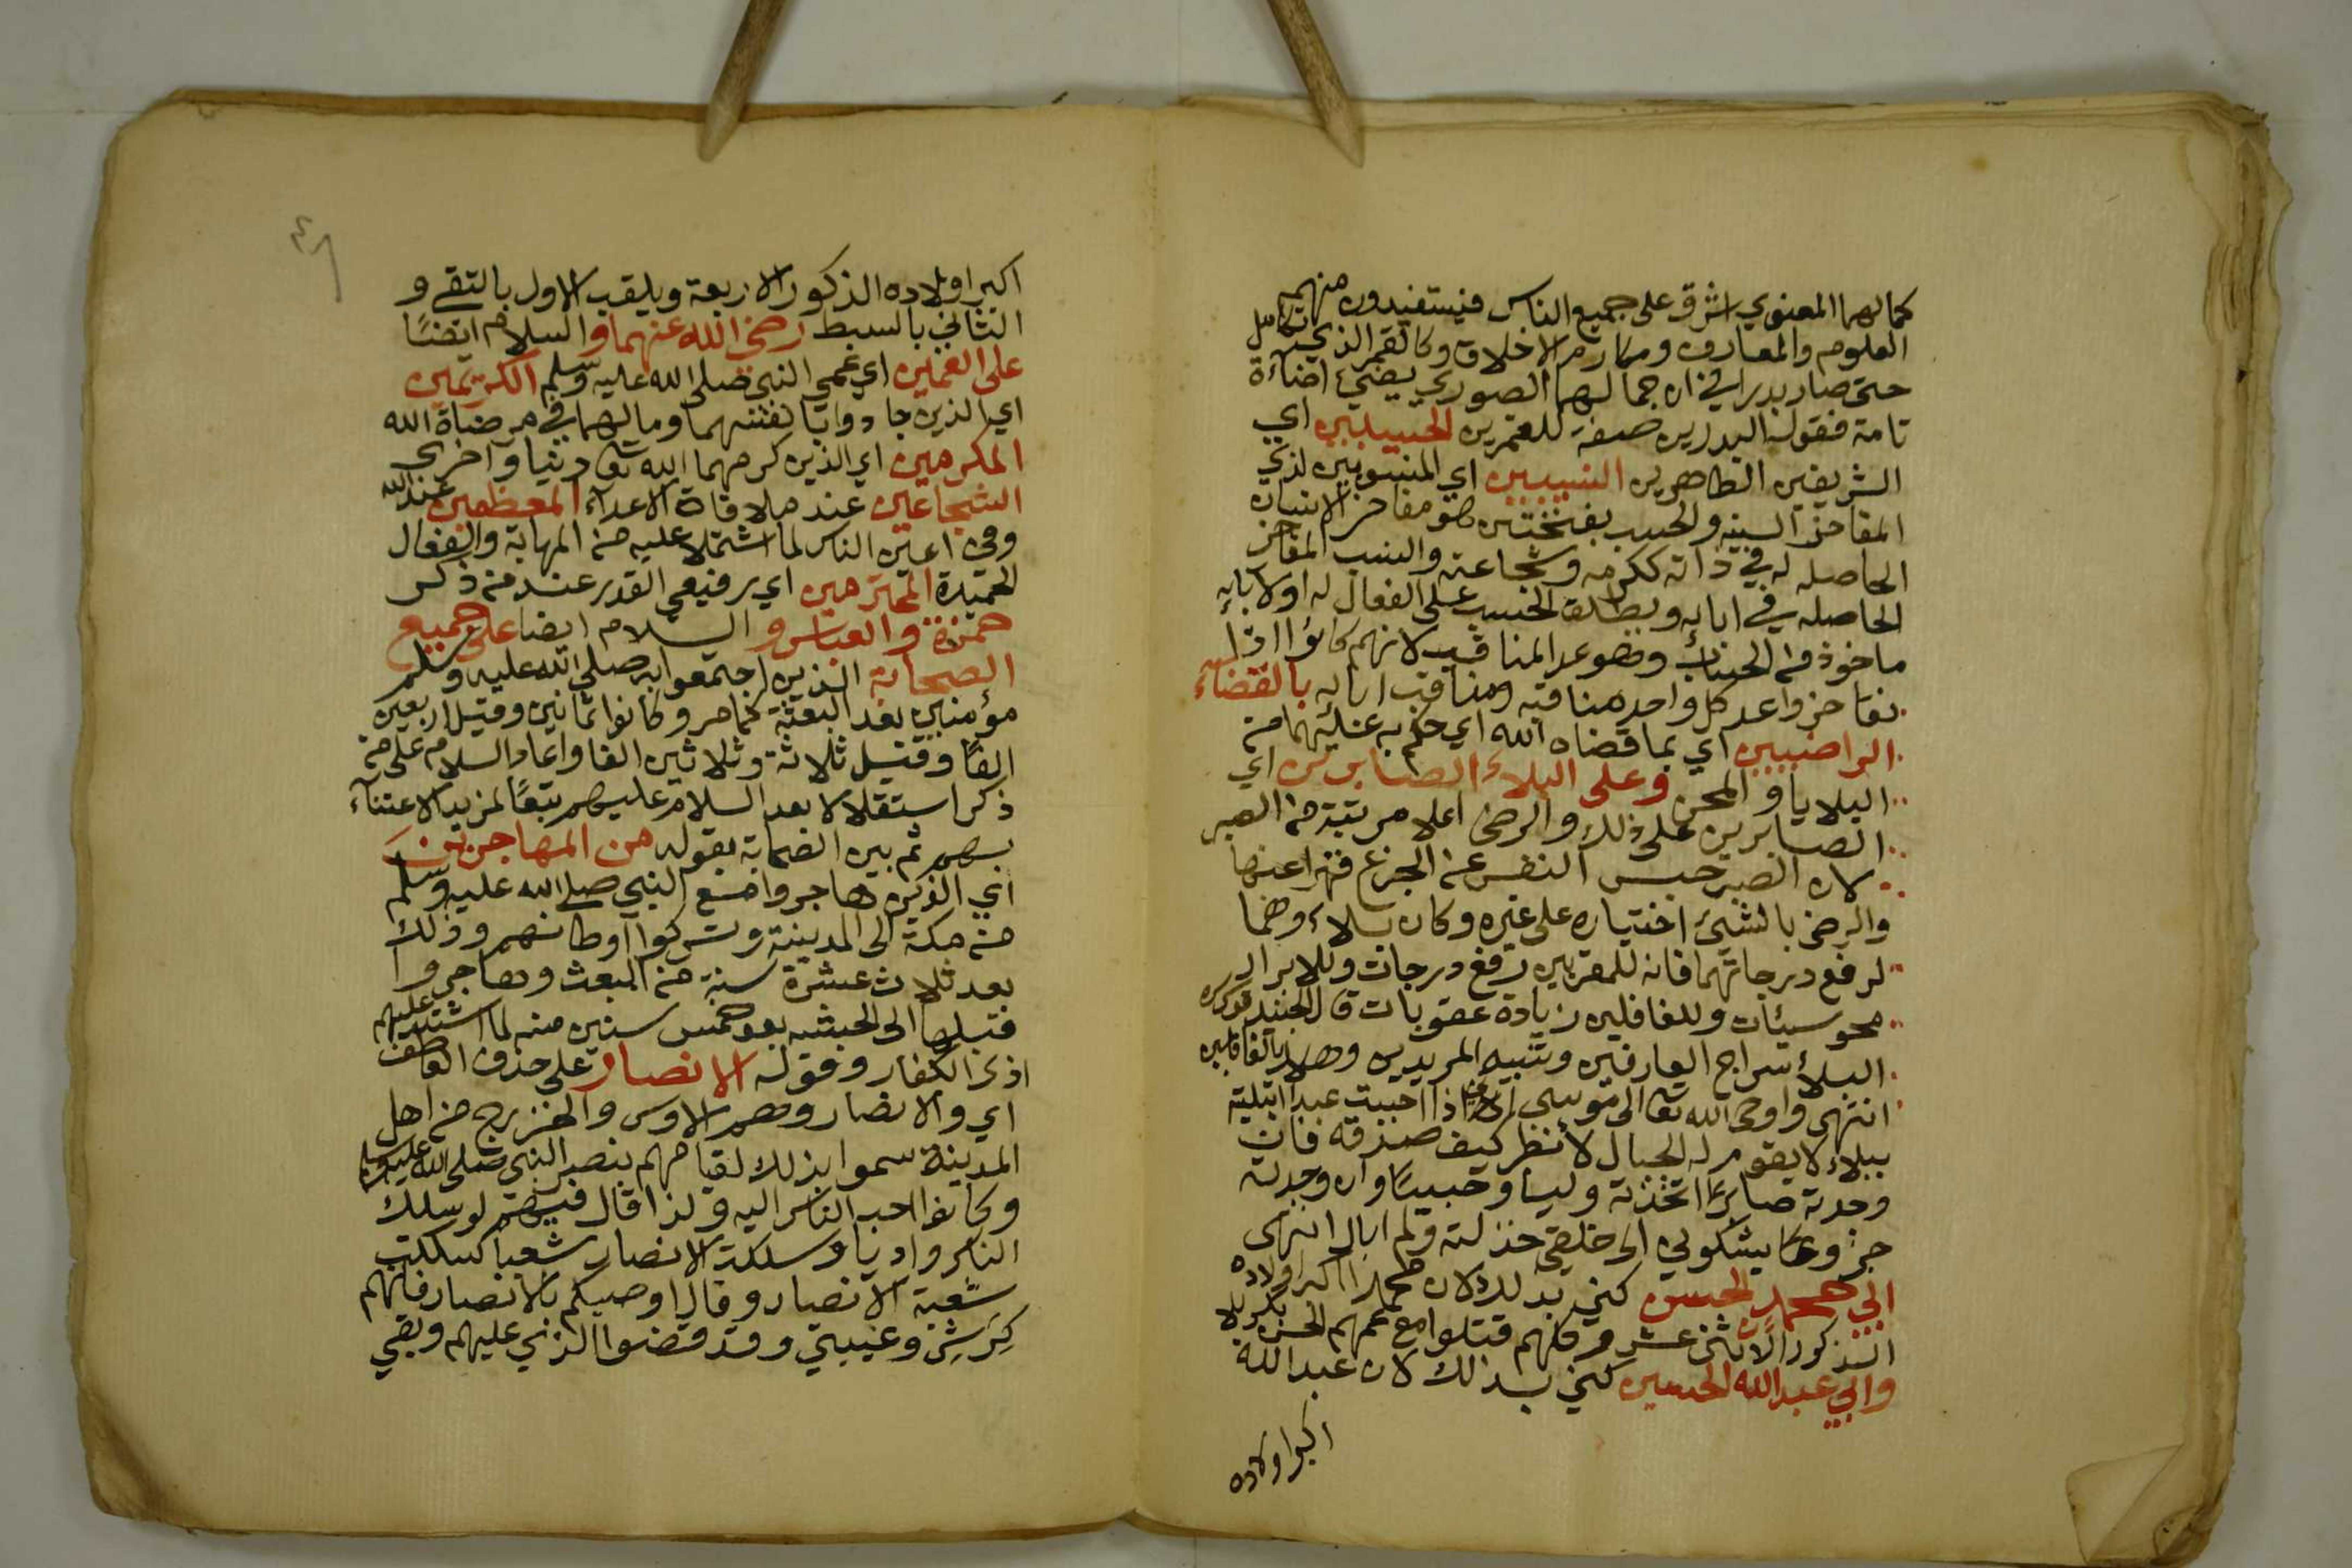 كمالهما المعنوي اشرق على جميع الناس فيستفيدون منهم
العلوم والمعارف ومكارم الاخلاق وكالقمر الذي تكامل
حتى صار بدرا في ان جمالهما الصوري يضيء اضاءة
تامة فقوله البدرين صفة للقمرين الحسيبين اي
الشريفين الطاهرين النسيبين اي المنسوبين لذي
المفاخر السنيه والحسب بفتحتين هو مفاخر الانسان
الحاصله له في ذاته ككرمه وشجاعته والنسب المفاخر
الحاصله في ابايه ويطلق الحسب على الفعال له او لابايه
ماخوذ من الحساب وهو عد المناقب لانهم كانوا اذا
تفاخروا عد كل واحد مناقبه ومناقب ابايه بالقضاء
الراضيين اي بما قضاه الله اي حكم به عليهما من
البلايا والمحن وعلى البلاء الصابرين اي
الصابرين على ذلك والرضى اعلا مرتبة من الصبر
لان الصبر حبس النفس عن الجزع قهرا عنها
والرضى بالشيء اختياره على غيره وكان بلاءوهما
لرفع درجاتهما فانه للمقربين رفع درجات وللابرار
محو سيئات وللغافلين زيادة عقوبات قال الجنيد
البلاء سراج العارفين وتنبيه المريدين وهلاك الغافلين
انتهى واوحى الله تعالى الى موسى اذا احببت عبدا ابتليته
ببلاء لا يقوم له الجبال لأنظر كيف صدقه فان
وجدته صابرًا اتخذته وليا وحبيبًا وان وجدته
جزوعا يشكوني الى خلقي خذلته ولم ابال انتهى
ابي محمد الحسن كني بولده لان محمدا اكبر اولاده
الذكور الاثنى عشر وكلهم قتلوا مع عمهم الحسين بكربلا
وابي عبدالله الحسين كني بذلك لان عبدالله
اكبر اولاده
٤٨
اكبر اولاده الذكور الاربعة ويلقب الاول بالتقي و
الثاني بالسبط رضي الله عنهما والسلام ايضًا
على العمين اي عمي النبي صلى الله عليه وسلم الكريمين
اي الذين جادوا بانفسهما ومالهما في مرضاة الله
المكرمين اي الذين كرمهما الله تعالى دنيا واخرى
الشجاعين عند ملاقاة الاعداء المعظمين عند الله
وفي اعين الناس لما اشتملا عليه من المهابة والفعال
الحميدة المحترمين اي رفيعي القدر عند من ذكر
حمزة والعباس و السلام ايضا على جميع
الصحابة الذين اجتمعوا به صلى الله عليه وسلم
مؤمنين بعد البعثة كما مر وكانوا ثمانين وقيل اربعين
الفًا وقيل ثلاثة وثلاثين الفا واعاد السلام على من
ذكر استقلالا بعد السلام عليهم تبعًا لمزيد الاعتناء
بهم ثم بين الصحابة بقوله من المهاجرين
اي الذين هاجروا مع النبي صلى الله عليه وسلم
من مكة الى المدينة وتركوا اوطانهم وذلك
بعد ثلاث عشرة سنة من البعث وهاجروا
قبلها الى الحبشه بعد خمس سنين منه لما اشتد عليهم
اذى الكفار وقوله الانصار على حذف العاطف
اي والانصار وهم الاوس والخزرج من اهل
المدينة سموا بذلك لقيامهم بنصر النبي صلى الله عليه وسلم
وكانوا احب الناس اليه ولذا قال فيهم لو سلك
الناس واديا وسلكت الانصار شعبا لسلكت
شعبة الانصار وقال اوصيكم بالانصار فانهم
كرشي وعيبتي وقد قضوا الذي عليهم وبقي